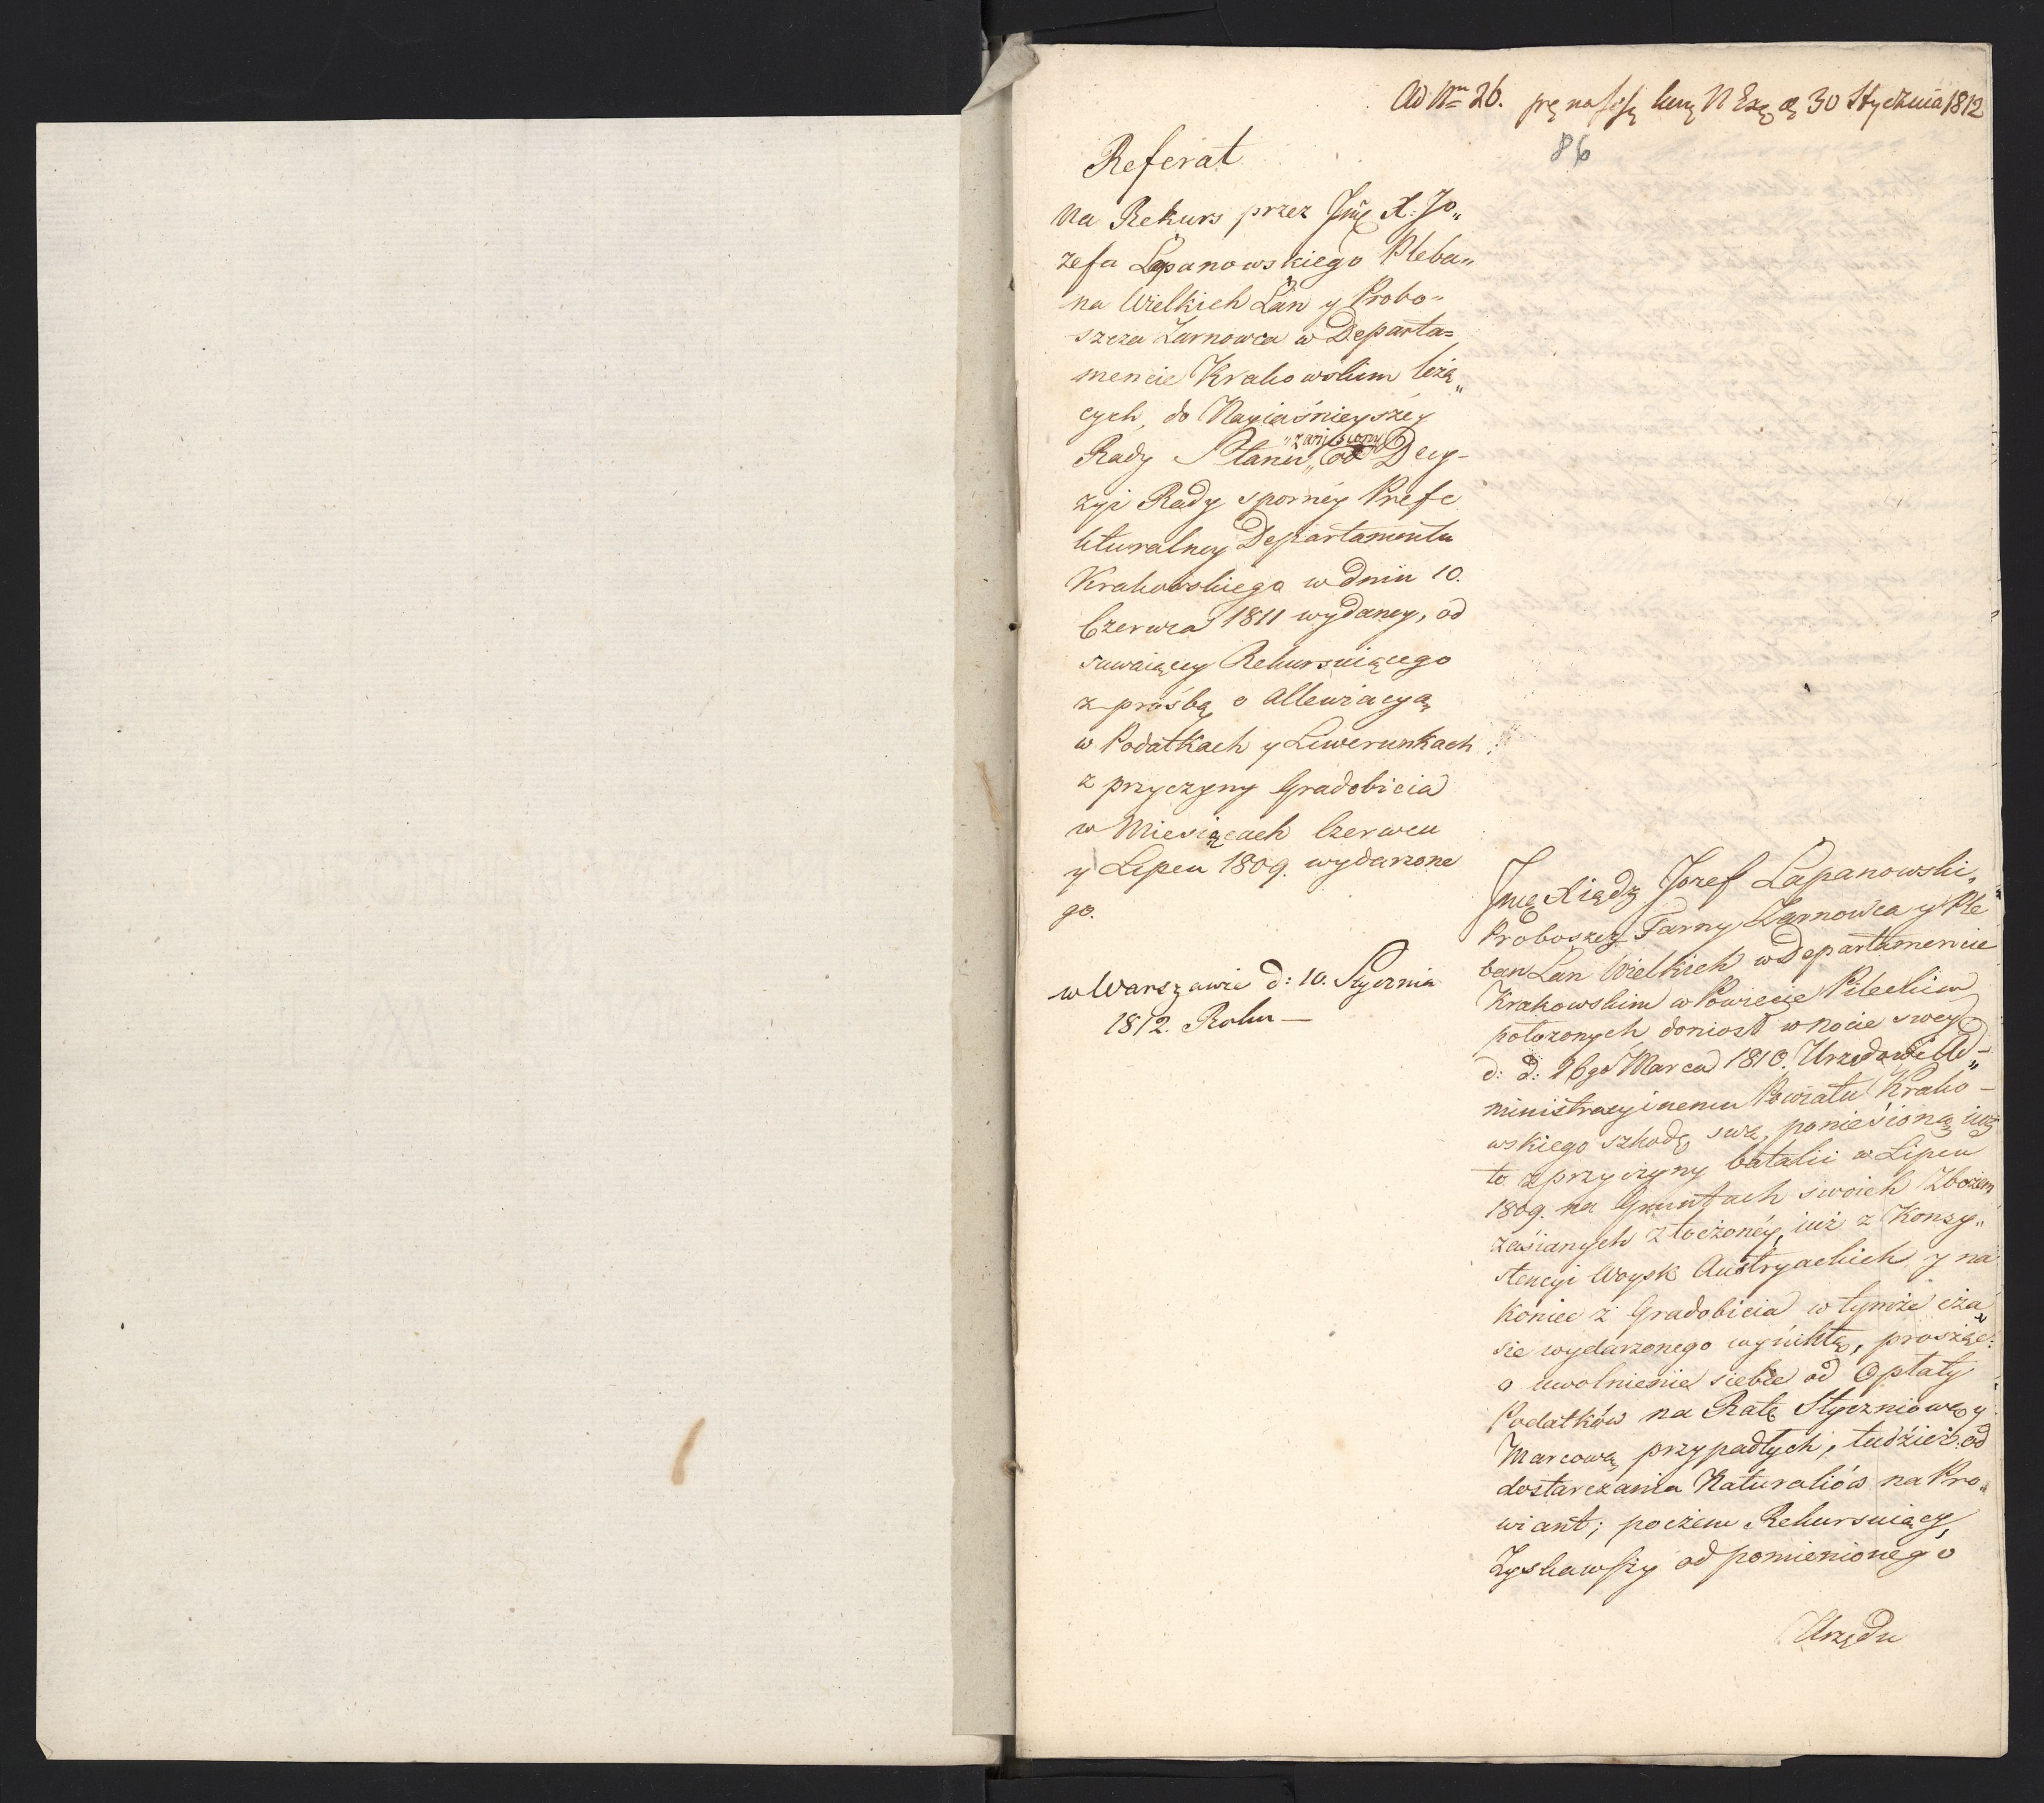 Ad Nrm 26. 30 Stycznia 1812
86
Referat
Na Rekurs przez Jmć X: Jo„
zefa Łapanowskiego Pleba„
na Wielkich Łan y Probo„
szcza Żarnowca w Departa=
mencie Krakowskim leżą„
cych, do Nayiaśnieyszéy
Rady Stanu „zaniesiony„ od Decy-
zyi Rady sporney Prefe
kturalney Departamentu
Krakowskiego w dniu 10.
Czerwca 1811 wydaney, od
suwaiącey Rekursuiącego
z prośbą o Allewiacyą
w Podatkach y Liwerunkach
z przyczyny Gradobicia
w Miesiącach Czerwcu
y Lipcu 1809. wydarzone
go.
w Warszawie d: 10. Stycznia
1812. Roku —
Jmć Xiądz Jozef Łapanowski„
Proboszcz Farny Żarnowca y Ple
ban Łan Wielkich w Departamencie
Krakowskim w Powiecie Pileckim
położonych doniosł w nocie swey
d: d: 26go Marca 1810. Urzędowi Ad„
ministracyinemu Powiatu Krako-
wskiego szkodę swą, poniesioną iuż
to z przyczyny batalii w Lipcu
1809. na Gruntach swoich Zbożem
zasianych ztoczonéy, iuż z Konsy„
stencyi Woysk Austryackich y na
koniec z Gradobicia w tymże cza„
sie wydarzonego wynikłą, prosząc
o uwolnienie siebie od Opłaty
Podatków na Ratę Styczniową y
Marcową przypadłych, tudzież od
dostarczania Naturaliów na Pro„
wiant; poczem Rekursuiący
Zyskawszy od pomienionego
Urzędu